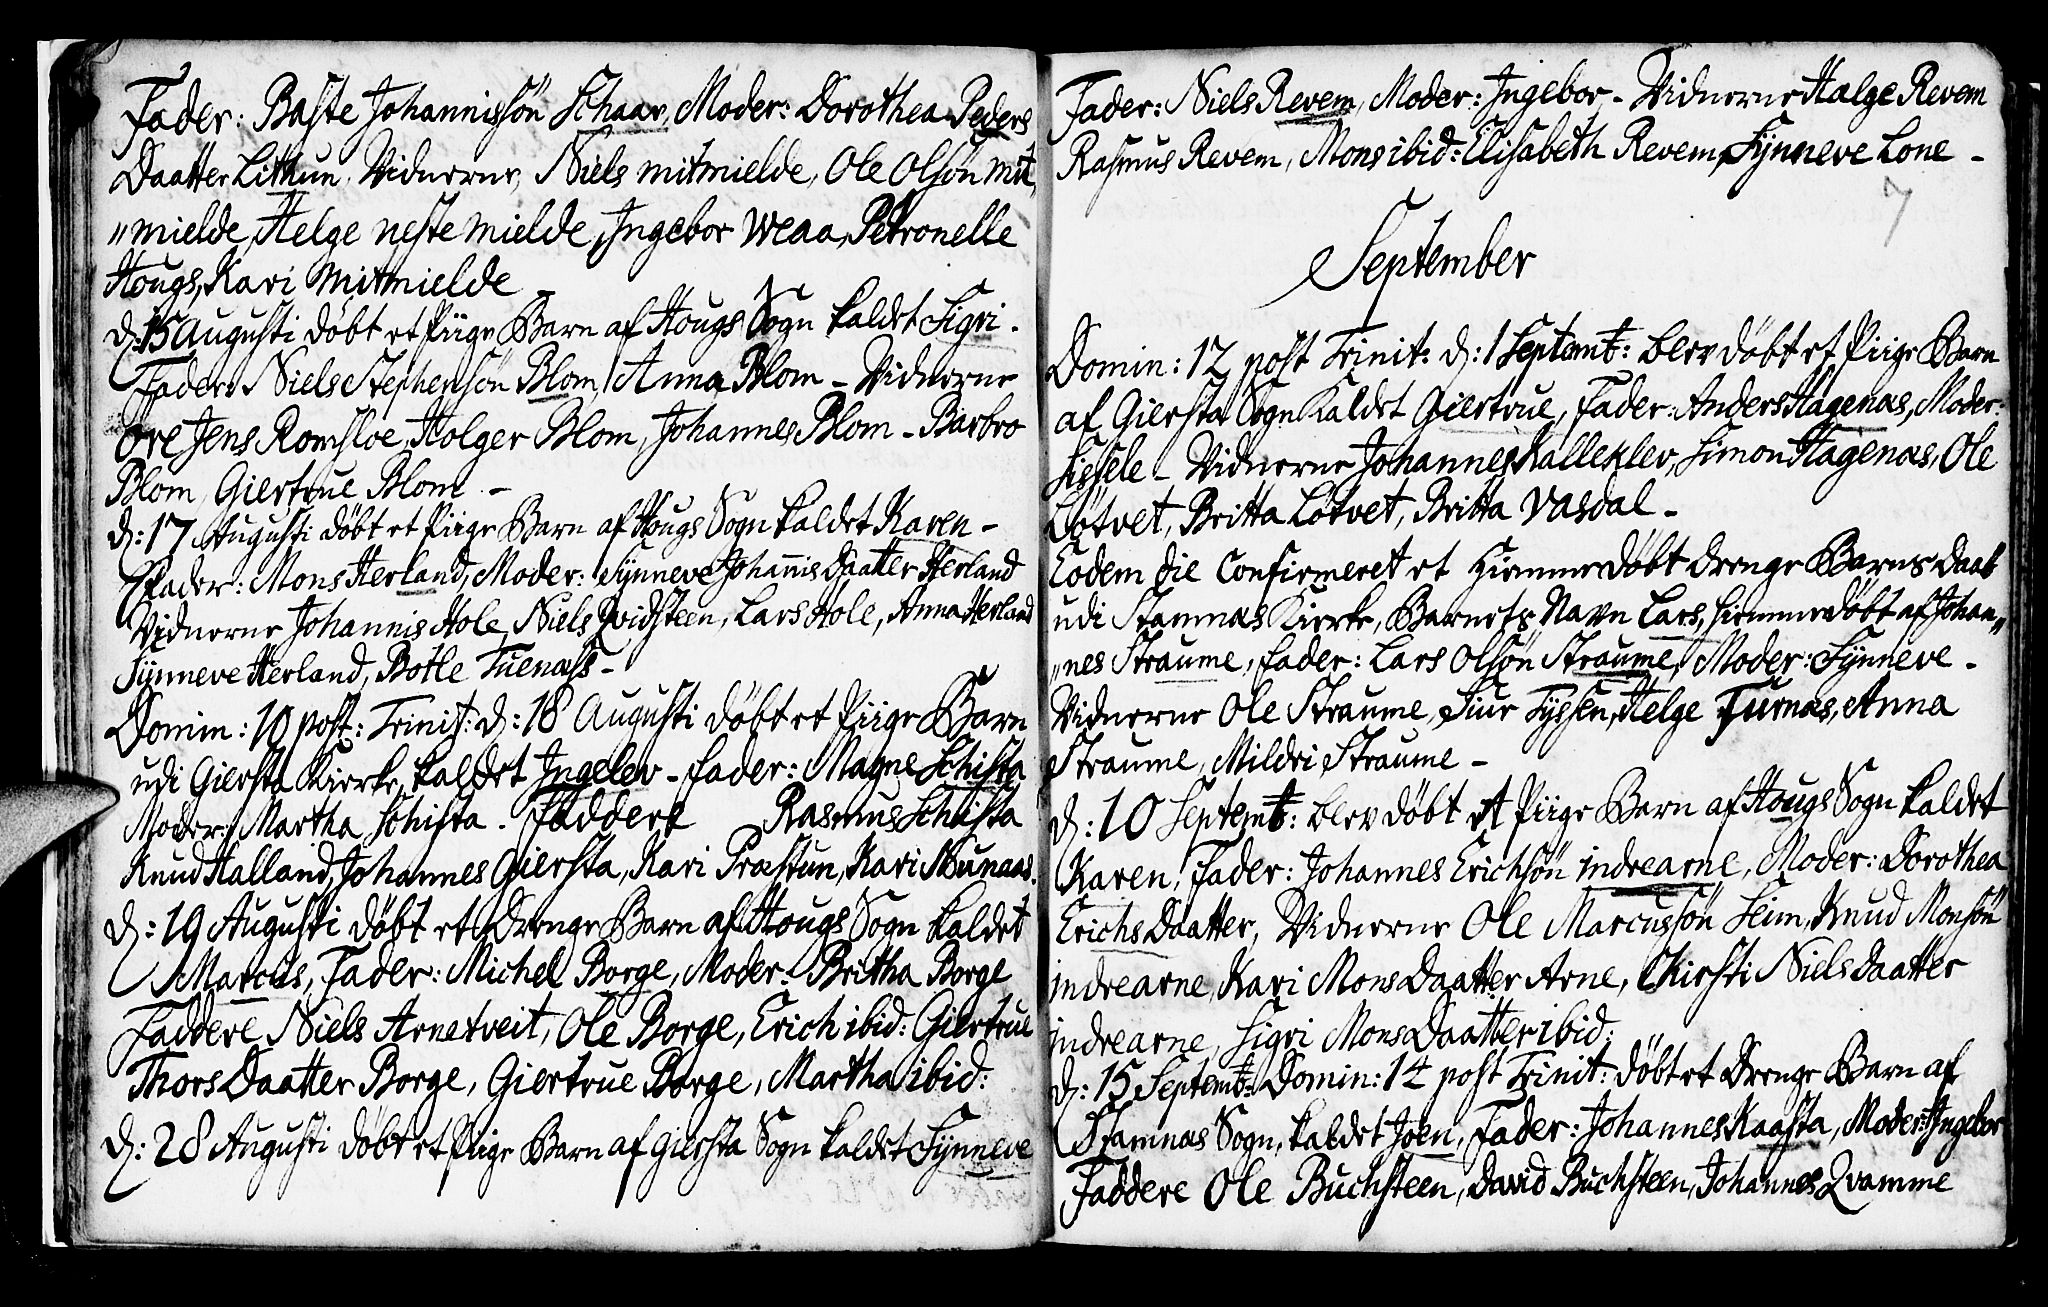 Fader: Baste Johannissön Schaar, Moder: Dorothea Peders
Daatter Lithun. Vidnerne, Niels mitmielde, Ole Olsön mit,
„mielde, Helge neste mielde, Ingebor Weaa, Petronelle
Hougs, Kari Mitmielde
d: 15 Augusti döbt et Piige Barn af Hougs Sogn kaldet Sigri.
Faders Niels Stephensön Blom, Anna Blom - Vidnerne
Ore Jens Romsloe, Holger Blom, Johannes Blom - Barbro
Blom, Giertrue Blom -
d: 17 Augusti döbt et Piige Barn af Hougs Sogn kaldet Karen -
Fader: Mons Herland, Moder: Synneve Johannis Daatter Herland
Vidnerne Johannis Hole, Niels Qvidsteen, Lars Hole, Anna Herland
Synneve Herland, Botle Tuenass -
Domin: 10 post: Trinit: d: 18 Augusti döbt et Piige Barn
udi Giersta Kierke, kaldet Ingelev - Fader: Magne Schista
Moder: Martha Schista. Faddere Rasmus Schista
Knud Halland, Johannes Giersta, Kari Præstun, Kari Munaas.
d: 19 Augusti döbt et Drenge Barn af Hougs Sogn kaldet
Marcus, Fader: Michel Borge, Moder: Britha Borge
Faddere Niels Arnetveit, Ole Borge, Erich ibid: Giertrue
Thors Daatter Borge, Giertrue Borge, Martha ibid:
d: 28 Augusti döbt et Piige Barn af Giersta Sogn kaldet Synneve
Fader: Niels Revem, Moder: Ingebor - Vidnerne Halge Revem
Rasmus Revem, Mons ibid: Elisabeth Revem, Synneve Lone -
7
September
Domin: 12 post Trinit: d: 1 Septemb: blev döbt et Piige Barn
af Giersta Sogn kaldet Giertrue, Fader: Anders Hagenæs, Moder:
Sissele - Vidnerne Johannes Kalleklev, Simon Hagenæs, Ole
Lötvet, Britta Lötvet, Britta Vasdal -
Eodem die Confirmeret et Hiemmedöbt Drenge Barns Daab
udi Stamnæs Kierke, Barnets Navn Lars, hiemmedöbt af Johan„
„nes Straume, Fader: Lars Olsön Straume, Moder: Synneve -
Vidnerne Ole Straume, Siur Tyssen, Helge Furnæs, Anna
Straume, Mildri Straume -
d: 10 Septemb: blev döbt et Piige Barn af Hougs Sogn kaldet
Karen, Fader: Johannes Erichsön indrearne, Moder: Dorothea
Erichs Daatter, Vidnerne Ole Marcussön Seim, Knud Monsön
indrearne, Kari Mons Daatter Arne, Chirsti Niels Daatter
indrearne, Sigri Mons Daatter ibid:
d: 15 Septemb: Domin: 14 post Trinit: döbt et Drenge Barn af
Stamnæs Sogn, kaldet Joen, Fader: Johannes Kaasta, Moder: Ingebor
Faddere Ole Buchsteen, David Buchsteen, Johannes Qvamme